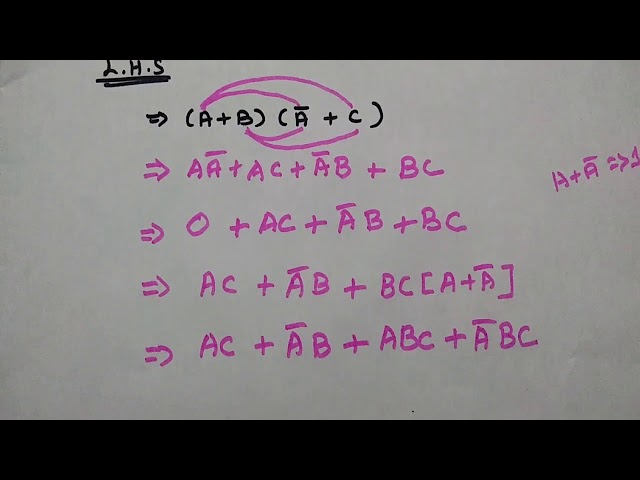 L.H.S
⇒ (A+B) (A̅ + C)
⇒ AA̅ + AC + A̅B + BC
A+A̅ ⇒ 1
⇒ 0 + AC + A̅B + BC
⇒ AC + A̅B + BC[A+A̅]
⇒ AC + A̅B + ABC + A̅BC